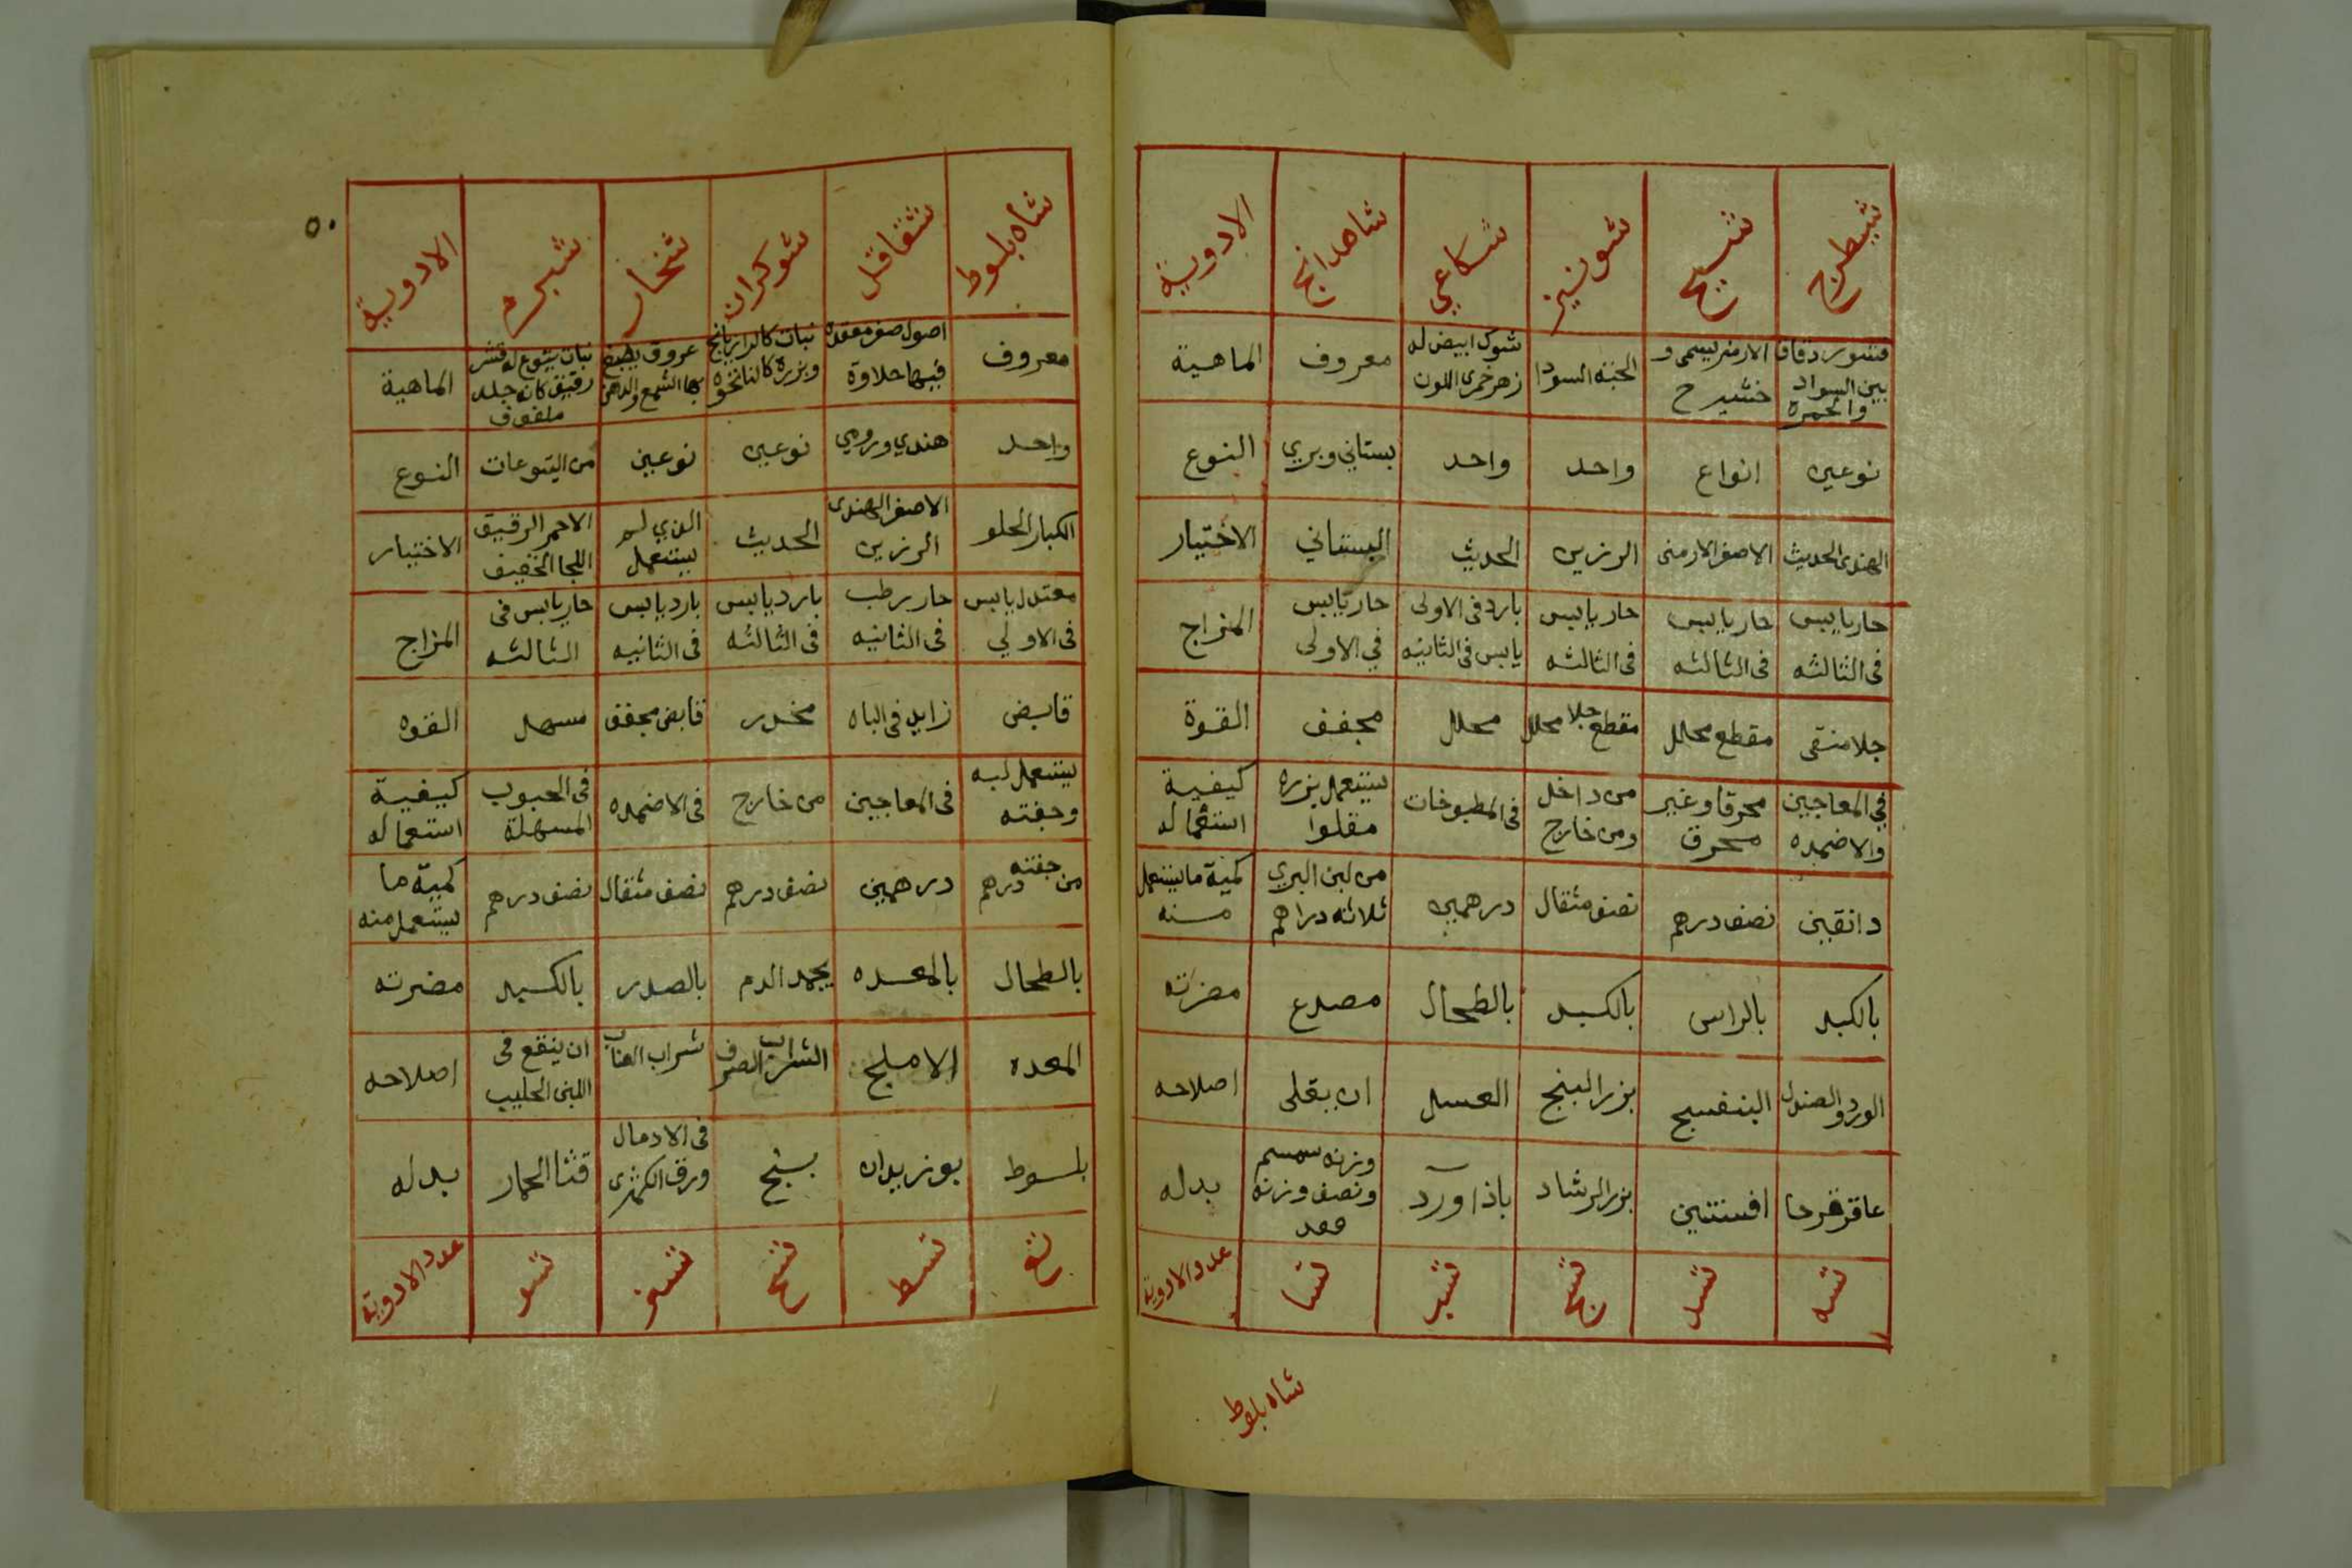 شيطرج شيح شونيز شكاعي شاهدانج الادوية
قشور دقاق بين السواد والحمره الارمنى يسمى و خشيرح الحبة السودا شوك ابيض له زهر خمرى اللون معروف الماهية
نوعين انواع واحد واحد بستاني وبري النوع
الهندى الحديث الاصفر الارمنى الرزين الحديث البستاني الاختيار
حار يابس فى الثالثه حار يابس فى الثالثه حار يابس فى الثالثه بارد فى الاولى يابس فى الثانيه حار يابس في الاولى المزاج
جلا منقى مقطع محلل مقطع جلا محلل محلل مجفف القوة
في المعاجين والاضمده محرقا وغير محرق من داخل ومن خارج فى المطبوخات يستعمل بزره مقلوا كيفية استعماله
دانقين نصف درهم نصف مثقال درهمين من لبن البري ثلاثه دراهم كمية ما يستعمل منه
بالكبد بالراس بالكبد بالطحال مصدع مضرته
الورد والصندل البنفسج بزر البنج العسل ان يقلى اصلاحه
عاقرقرحا افسنتين بزر الرشاد باذاورد وزنه سمسم ونصف وزنه بدله
شسه شسد شسج شسب شسا عدد الادوية
شاه بلوط
٥٠
شاه بلوط شقاقل شوكران شنجار شبرم الادوية
معروف اصول صفر معقده فيها حلاوة نبات كالرازيانج وبزره كالنانخوه عروق يصبغ بها الشمع والدهن نبات يتوع له قشر رقيق كانه جلد ملفوف الماهية
واحد هندي ورومي نوعين نوعين من اليتوعات النوع
الكبار الحلو الاصفر الهندى الرزين الحديث الذي لم يستعمل الاحمر الرقيق اللحا الخفيف الاختيار
معتدل يابس فى الاولي حار رطب فى الثانيه بارد يابس فى الثالثه بارد يابس فى الثانيه حار يابس فى الثالثه المزاج
قابض زايد فى الباه مخدر قابض مجفف مسهل القوه
يستعمل لبه وجفته فى المعاجين من خارج فى الاضمده فى الحبوب المسهلة كيفية استعماله
من جفته درهم درهمين نصف درهم نصف مثقال نصف درهم كمية ما يستعمل منه
بالطحال بالمعده يجمد الدم بالصدر بالكبد مضرته
المعده الاملج الشراب الصرف شراب العناب ان ينقع فى اللبن الحليب اصلاحه
بلوط بوزيدان بنج فى الادمال ورق الكمثرى قثا الحمار بدله
شع شسط شسح شسز شسو عدد الادوية